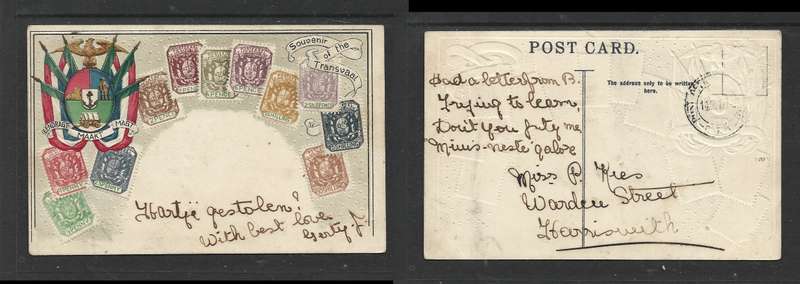 Souvenir
of the
Transvaal
EENDRAGT MAAKT MAGT
Hartje gestolen!
With best love
Gerty J.
POST CARD.
The address only to be written
here.
Had a letter from B.
Trying to learn,
Don't you pity me
Muis-neste galore
Miss P. Hies
Warden Street
Harrismith